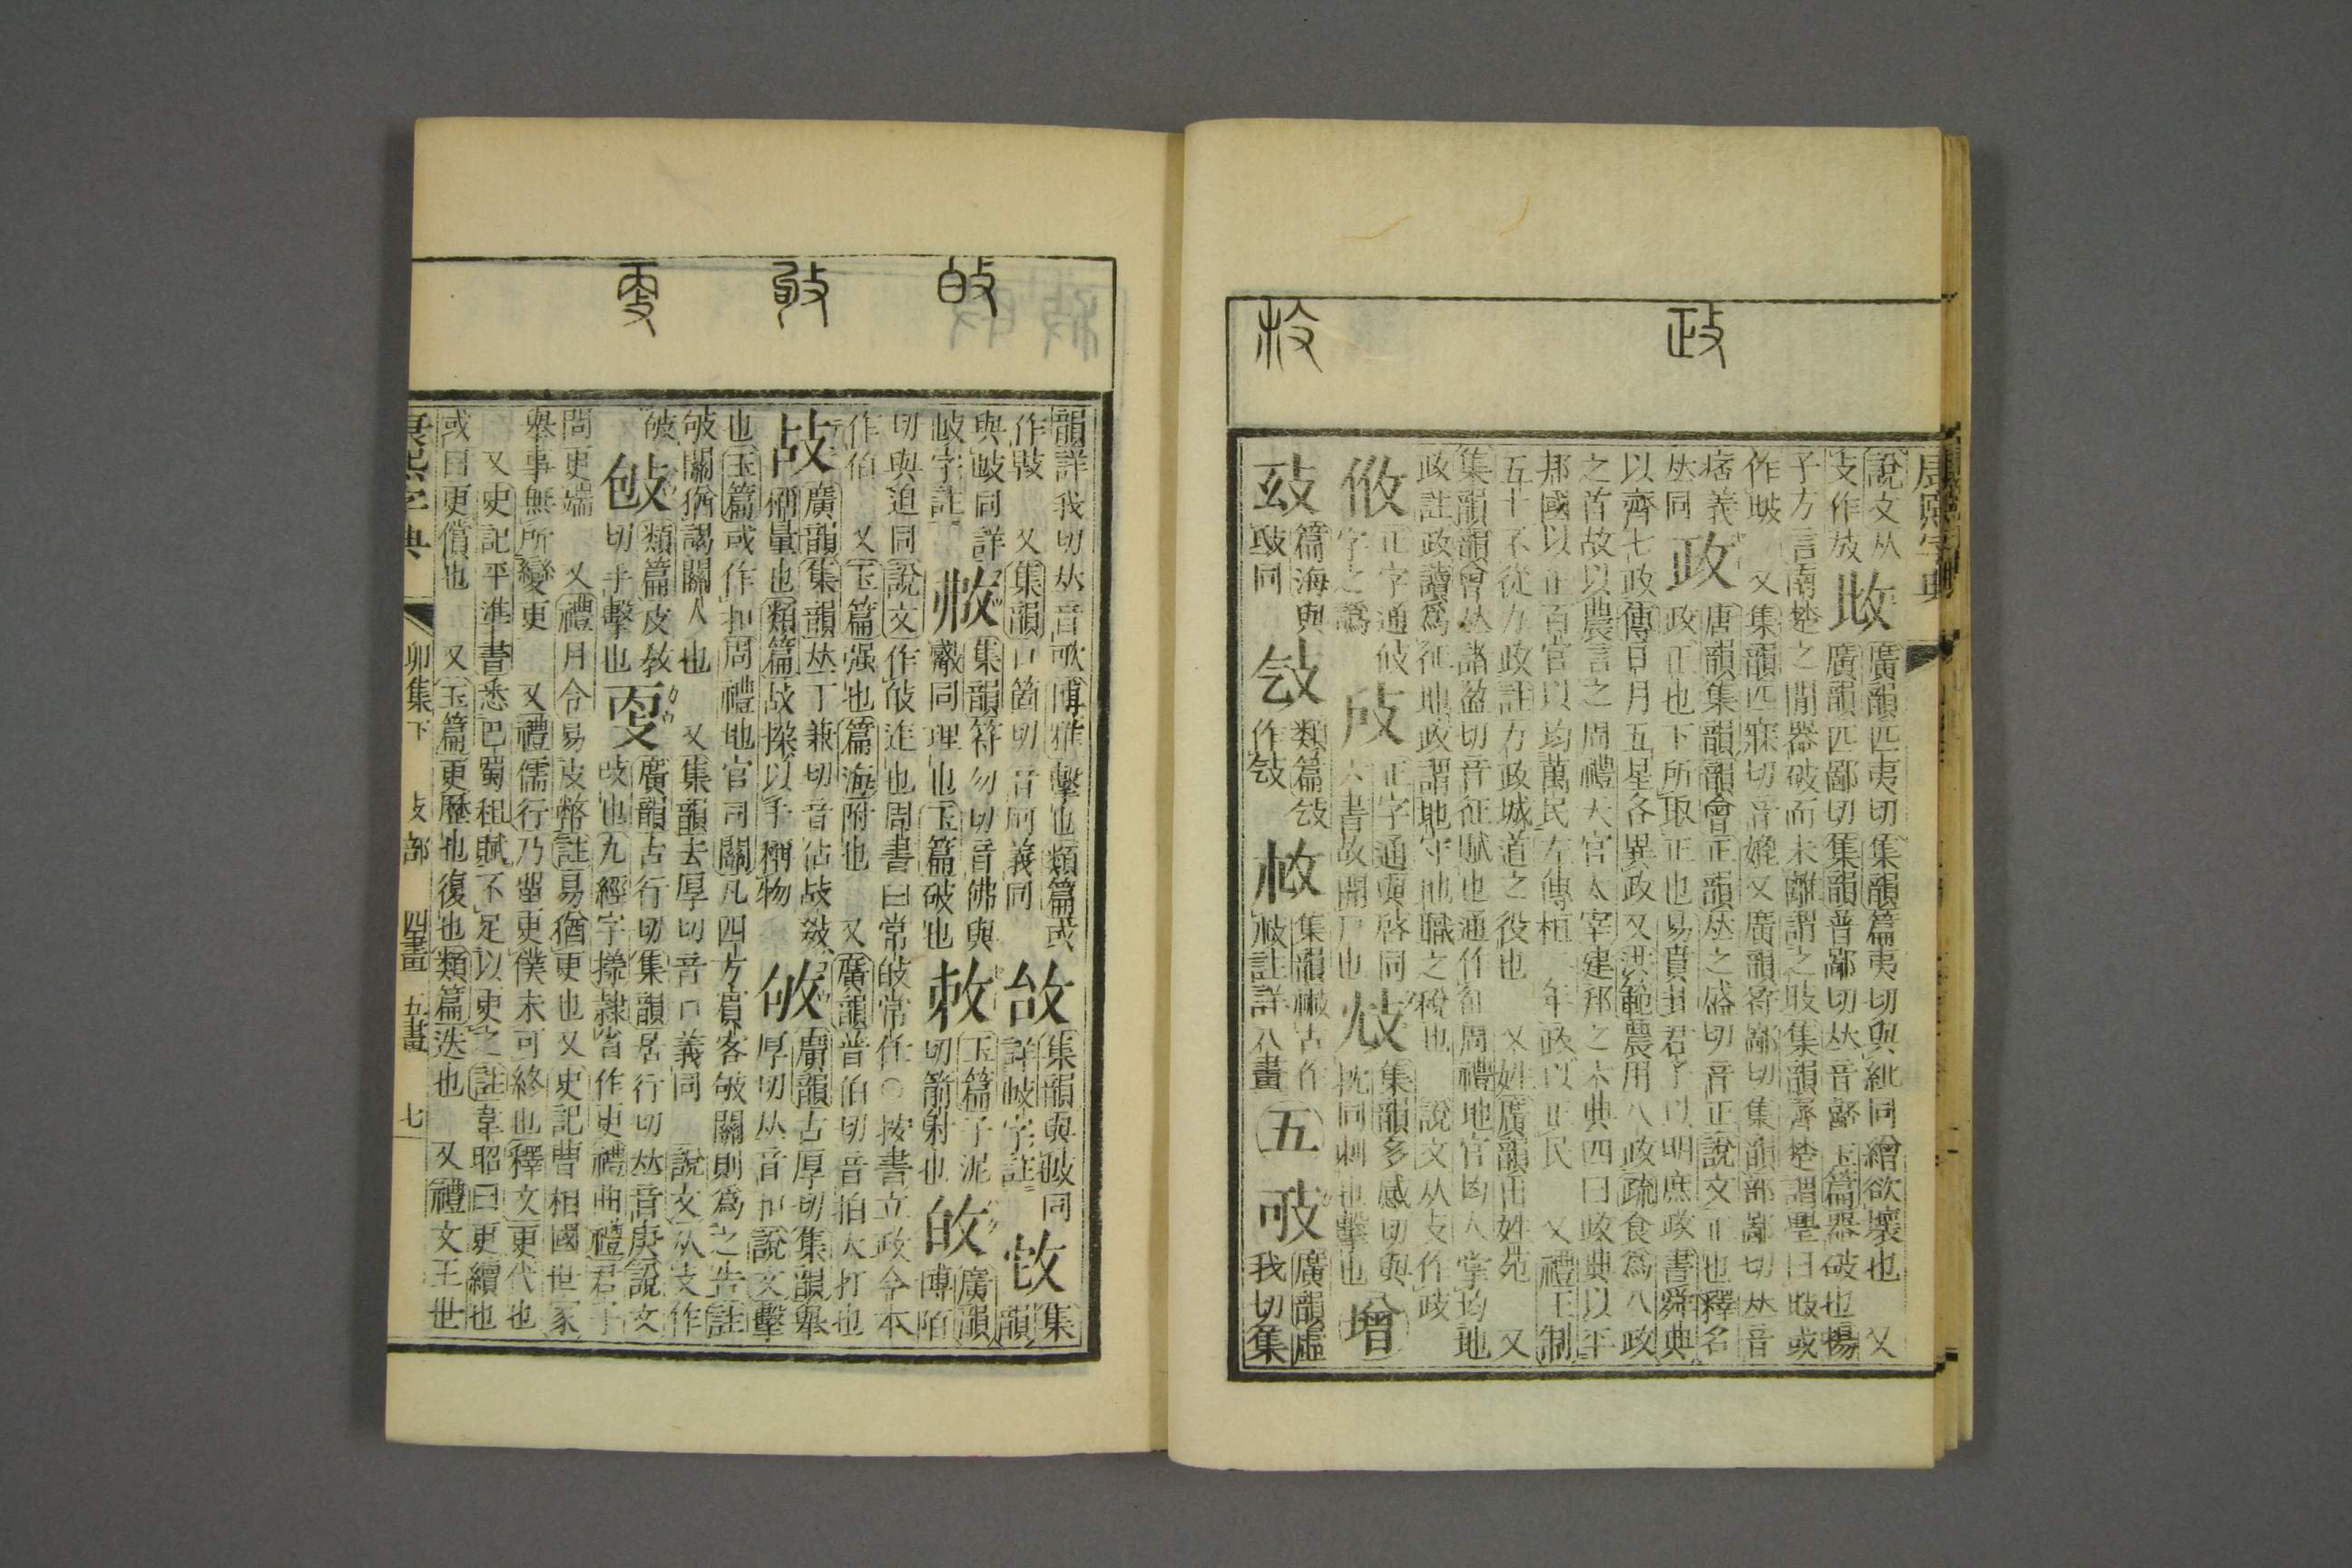 政
說文从
攴作㩻
廣韻匹夷切集韻篇夷切與紕同繒欲壞也 又
廣韻匹鄙切集韻普鄙切𠀤音嚭玉篇器破也揚
子方言南楚之閒器破而未離謂之㩻集韻齊楚謂璺曰㩻或
作㱟 又集韻匹寐切音媲又廣韻符鄙切集韻部鄙切𠀤音
痞義
𠀤同
政
唐韻集韻韻會正韻𠀤之盛切音正說文正也釋名
政正也下所取正也易賁卦君子以明庶政書舜典
以齊七政傳日月五星各異政又洪範農用八政疏食爲八政
之首故以農言之周禮天官太宰建邦之六典四曰政典以平
邦國以正百官以均萬民左傳桓二年政以正民 又禮王制
五十不從力政註力政城道之役也 又姓廣韻出姓苑 又
集韻韻會𠀤諸盈切音征賦也通作征周禮地官均人掌均地
政註政讀爲征地政謂地守地職之稅也 說文从攴作政
正字通攸
字之譌
正字通與啓同
六書故開戸也
集韻多感切與
抌同刺也擊也
增
篇海與
㪁同
類篇㪁
作㪁
集韻
註詳八畫
五
廣韻虛
我切集
韻許我切𠀤音歌博雅擊也類篇或
作㱒 又集韻口箇切音坷義同
集韻與㱟同
詳㱟字註
集
韻
與㱟同詳
㱟字註
集韻符勿切音佛與
黻同理也玉篇破也
玉篇子泥
切箭射也
㿟
廣韻
博陌
切與迫同說文作㿟迮也周書曰常㿟常任○按書立政今本
作伯 又玉篇强也篇海附也 又廣韻普伯切音拍大打也
战
廣韻集韻𠀤丁兼切音佔战敠
稱量也類篇战㧲以手稱物
廣韻古厚切集韻舉
厚切𠀤音㖃說文擊
也玉篇或作扣周禮地官司關凡四方賔客㪃關則爲之告註
㪃關猶謁關人也 又集韻去厚切音口義同 說文从攴作
㪃
類篇皮敎
切手擊也
廣韻古行切集韻居行切𠀤音庚說文
改也九經字樣隷省作更禮曲禮君子
問更端 又禮月令易皮幣註易猶更也又史記曹相國世家
舉事無所變更 又禮儒行乃畱更僕未可終也釋文更代也
又史記平準書悉巴蜀租賦不足以更之註韋昭曰更續也
或曰更償也 又玉篇更歷也復也類篇迭也 又禮文王世
康熙字典 卯集下 攴部 四畫 五畫 七